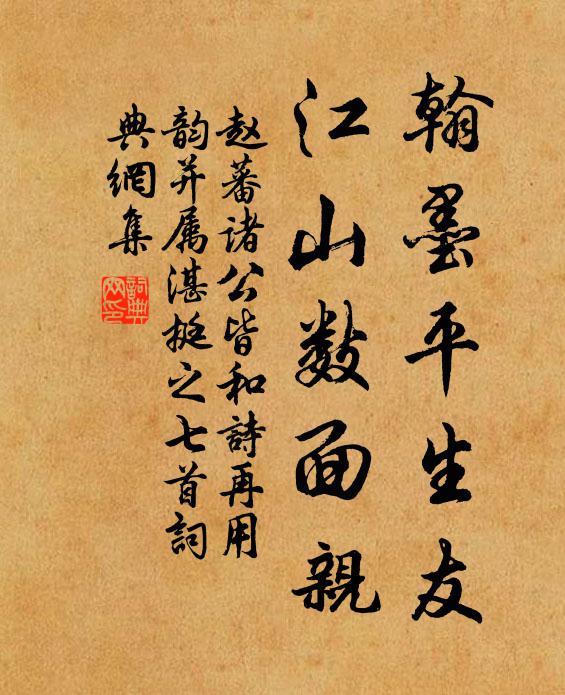 翰墨平生友
江山数面親
赵蕃诸公皆和詩再用
韵并属湛挺之七首詞
典網集
詞典
网印